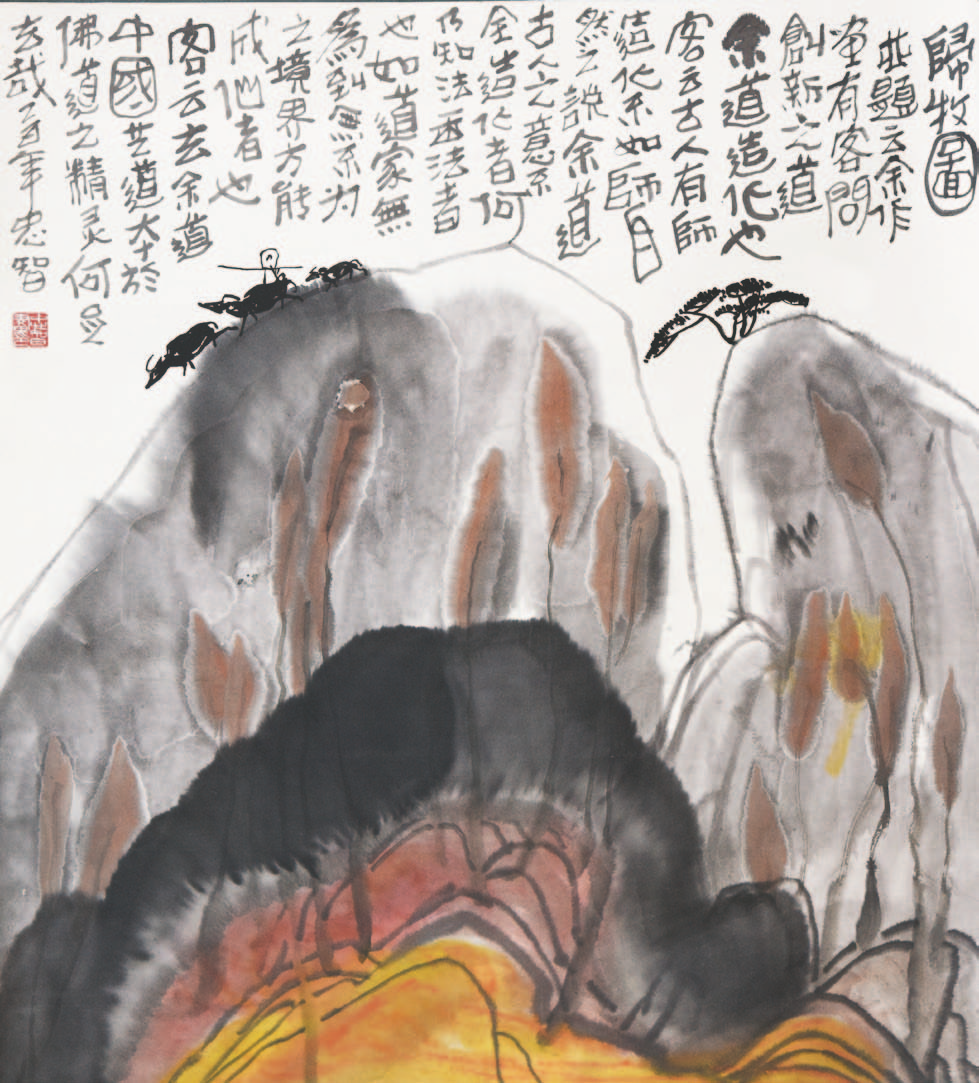 歸牧圖
此題云余作
畫有客問
創新之道
余道造化也
客云古人有師
造化不如師自
然之說余道
古人之意不
全造化者何
乃知法丟法者
也如道家無
為到無不为
之境界方能
成仙者也
客云去余道
中國艺道大於
佛道之精灵何
玄哉乙酉年忠智